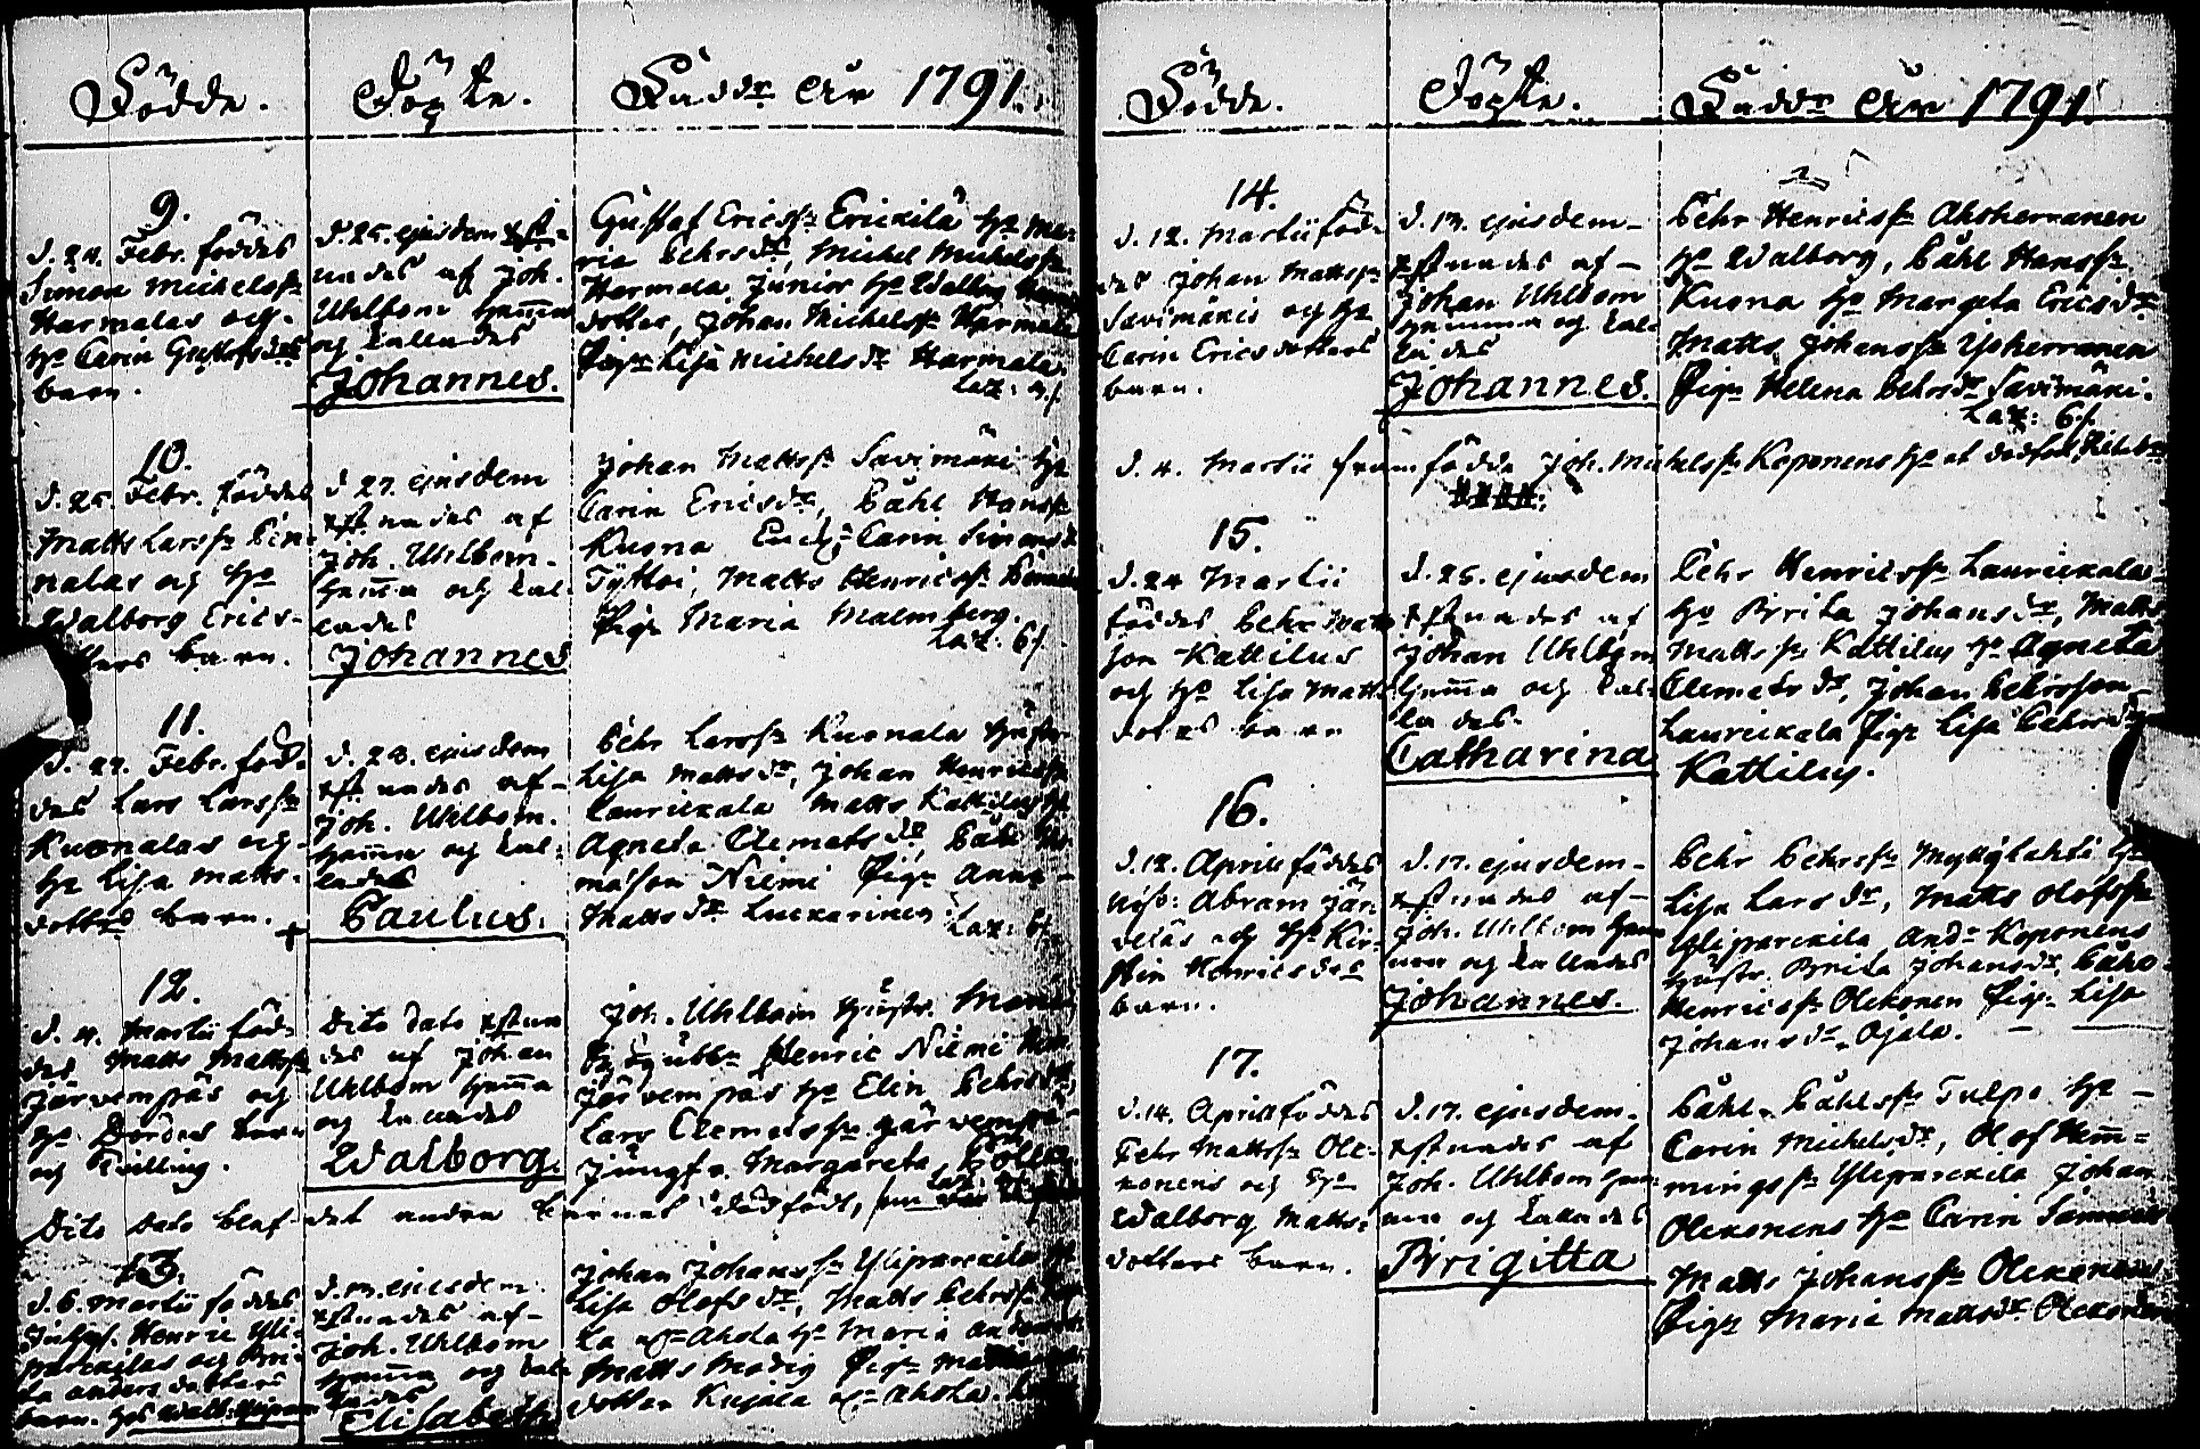 Födde.
Döpte.
Faddr Año 1791.
9.
d. 24. Febr. föddes
Simon Michelsn
Harmalas och
Ho Carin Gustafsdrs
barn.
d. 25. ejusdem xst-
nades af Joh.
Uhlbom hema
och kallades
Johannes.
Gustaf Ericssn Erickilä Ho Ma-
ria Pehrsdr, Michel Michelssn
Harmala Junior Ho Walborg
dotter, Johan Michelssn Harmala
Pign Lisa Michelsdr Harmala.
10.
d. 25. Febr. föddes
Matts Larssn
nalas och Ho
Walborg Erics-
barn.
d. 27. ejusdem
xstnades af
Joh. Uhlbom.
hema och kal-
lades
Johannes
Johan Mattssn Savimäki Ho
Carin Ericsdr, Påhl Hanssn
Kuona Carin Simonsdr
Tyttoi, Matts Henricssn
Pign Maria Malmberg.
Lax: 6/.
11.
d. 27. Febr. föd-
des Lars Larssn
Kuonalas och
Ho Lisa Matts-
dotters barn.
d. 28. ejusdem
xstnades af
Joh. Uhlbom.
hema och kal-
lades
Paulus.
Pehr Larssn Kuonala hustr
Lisa Mattsdr, Johan Henricssn
Laurickala Matts Kattilus Ho
Agneta Clemetsdr, Påhl Tho-
masson Niemi Pign Anna
Mattsdr Luckarinen
Lax: 6/.
12.
d. 4. Martii föd-
des Matts Mattssn
Järvempäs och
Ho Dordes barn
och Tvilling.
Dito Dato xstna-
des af Johan
Uhlbom hema
och kallades
Walborg.
Joh. Uhlbom hustr.
Henric Niemi
Järvempäs Ho Elin Pehrsdr
Lars Clemetssn Järvempä
Jungfr. Margareta
Dito Dato blef det andra barnet dödfödt,
13.
d. 6. Martii föddes
Henric Yli-
parckilas och Bri-
ta Anders dotters
barn.
ejusdem
xstnades af
Joh. Uhlbom
hema och kal-
lades
Elisabeth
Johan Johanssn Yliparckila Ho
Lisa Olofsdr, Matts Pehrssn
Ahola Ho Maria Anders
Matts Modig Pign
dotter Kujala Ahola.
Födde.
Döpte.
Faddr Año 1791.
14.
d. 12. Martii föd-
des Johan Mattssn
Savimäkis och Ho
Carin Ericsdotters
barn.
d. 13. ejusdem
xstnades af
Johan Uhlbom
hemma och kal-
lades
Johannes.
Pehr Henricssn Ahoherranen
Ho Walborg, Påhl Hanssn
Kuona Ho Margeta Ericsdr
Matts Johanssn Ypherranen
Pign Helena Pehrsdr Savimäki.
Lax: 6/.
d. 4. Martii framfödde Joh. Michelssn Koponens Ho et dödfödt
15.
d. 24 Martii
föddes Pehr Matts
son Kattilus
och Ho Lisa Matts
dotters barn
d. 25. ejusdem
xstnades af
Johan Uhlbom
hema och kal-
lades.
Catharina
Pehr Henricssn Laurickala
Ho Brita Johansdr, Matts
Mattssn Kattilus Ho Agneta
Clemetsdr, Johan Pehrsson
Laurickala Pign Lisa Pehrsdr
Kattilus.
16.
d. 12. April föddes
Abram Jär-
veläs och Ho Kir-
stin Henricsdrs
barn.
d. 17. ejusdem
xstnades af
Joh. Uhlbom hem-
ma och kallades
Johannes.
Pehr Pehrssn Myllylahti Ho
Lisa Larsdr, Matts Olofssn
Yliparckila Andr Koponens
hustr. Brita Johansdr, Påhl
Henricssn Olckonen Pign Lisa
Johansdr Ojala.
17.
d. 14. April föddes
Pehr Mattssn Olc-
konens och Ho
Walborg Matts-
dotters barn.
d. 17. ejusdem.
xstnades af
Joh. Uhlbom hem-
ma och kallades
Brigitta
Påhl Påhlssn Tulpo Ho
Carin Michelsdr, Olof Hem-
mingssn Yliparckila Johan
Olckonens Ho Carin
Matts Johanssn Olckonen
Pign Maria Mattsdr Olckonen